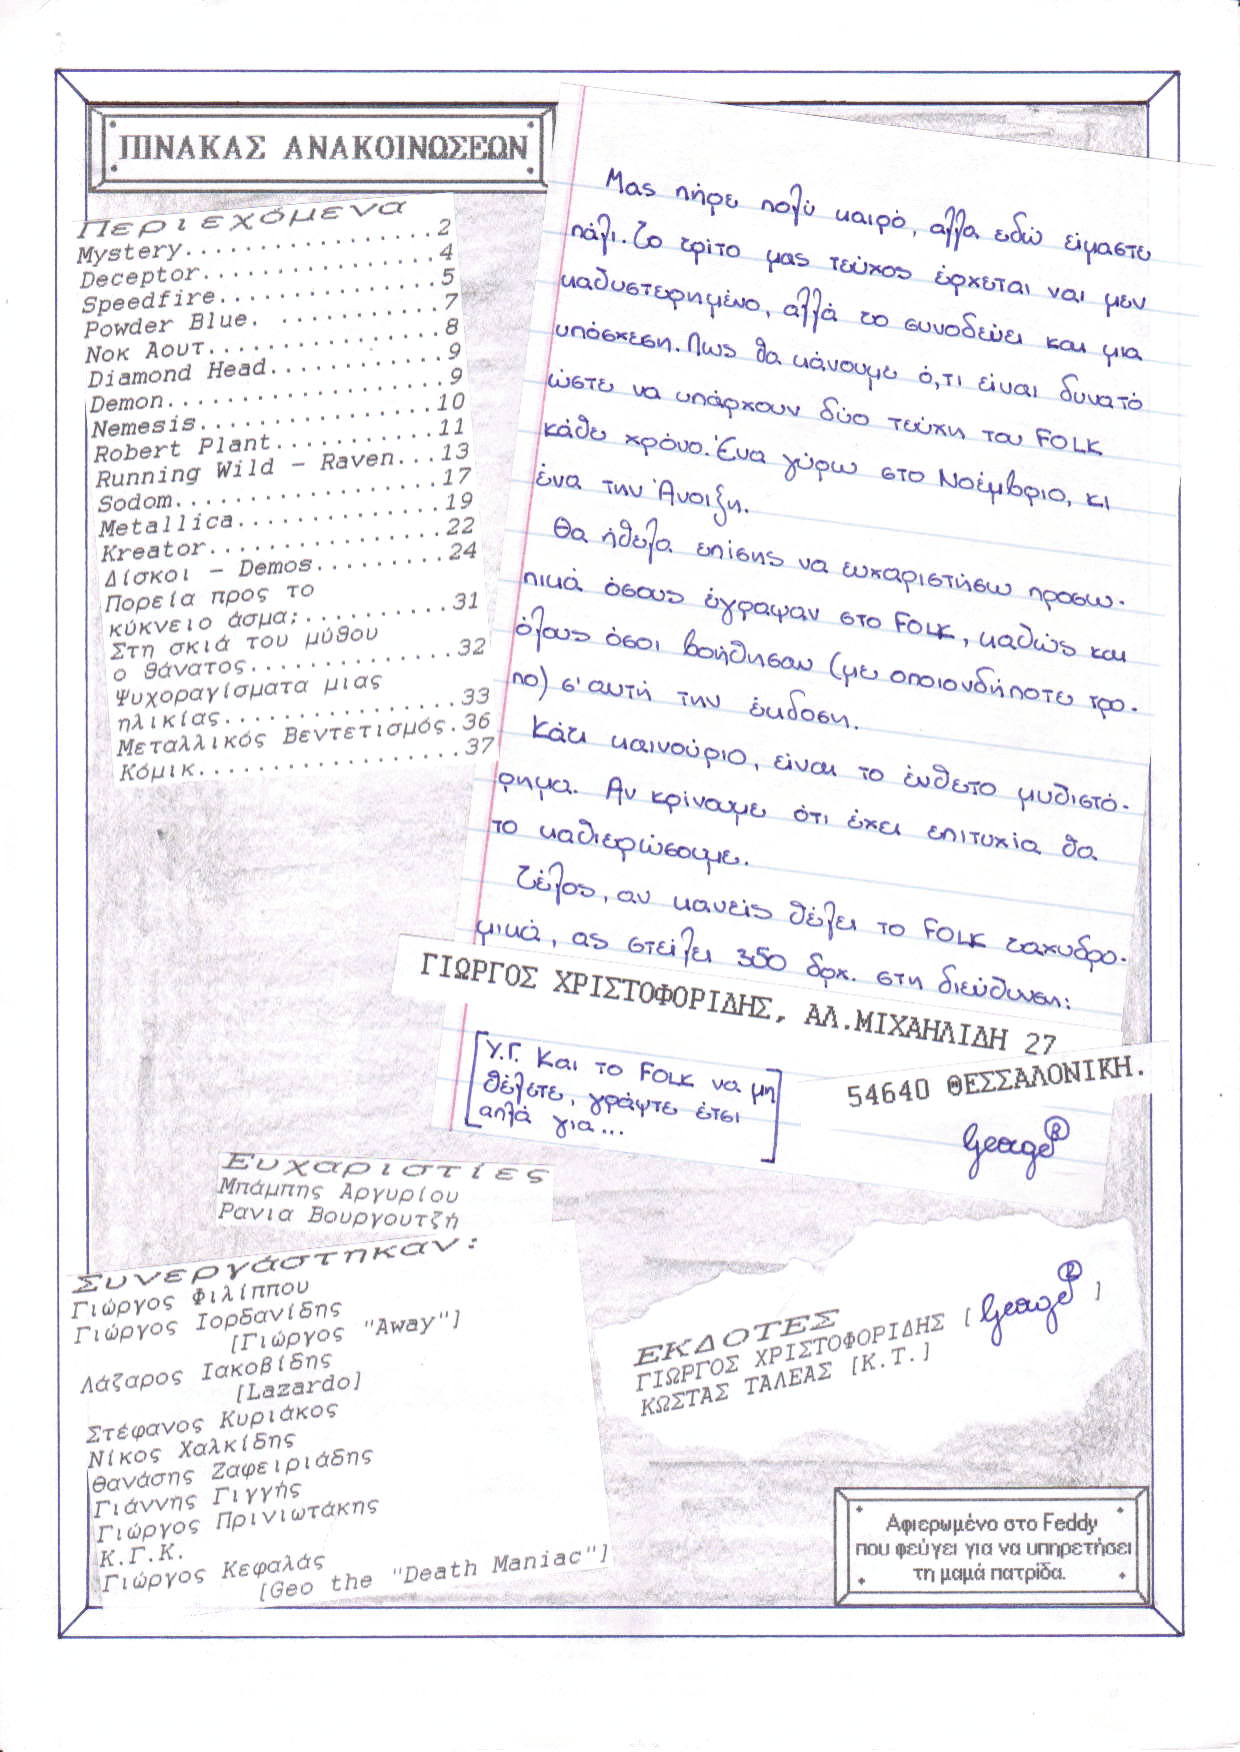 ΠΙΝΑΚΑΣ ΑΝΑΚΟΙΝΩΣΕΩΝ
Περιεχόμενα
Mystery..................2
Deceptor.................4
Speedfire................5
Powder Blue. ............7
Νοκ Αουτ.................8
Diamond Head.............9
Demon....................9
Nemesis.................10
Robert Plant............11
Running Wild - Raven...13
Sodom...................17
Metallica...............19
Kreator.................22
Δίσκοι - Demos..........24
Πορεία προς το
κύκνειο άσμα;...........31
Στη σκιά του μύθου
ο θάνατος...............32
Ψυχοραγίσματα μιας
ηλικίας.................33
Μεταλλικός Βεντετισμός.36
Κόμικ...................37
Μας πήρε πολύ καιρό, αλλα εδώ είμαστε
πάλι. Το τρίτο μας τεύχος έρχεται ναι μεν
καθυστερημένο, αλλά το συνοδεύει και μια
υπόσχεση. Πως θα κάνουμε ό,τι είναι δυνατό
ώστε να υπάρχουν δύο τεύχη του FOLK
κάθε χρόνο. Ένα γύρω στο Νοέμβριο, κι
ένα την Άνοιξη.
Θα ήθελα επίσης να ευχαριστήσω προσω-
πικά όσους έγραψαν στο FOLK, καθώς και
όλους όσοι βοήθησαν (με οποιονδήποτε τρο-
πο) σ' αυτή την έκδοση.
Κάτι καινούριο, είναι το ένθετο μυθιστό-
ρημα. Αν κρίνουμε ότι έχει επιτυχία θα
το καθιερώσουμε.
Τέλος, αν κανείς θέλει το FOLK ταχυδρο-
μικά, ας στείλει 350 δρχ. στη διεύθυνση:
ΓΙΩΡΓΟΣ ΧΡΙΣΤΟΦΟΡΙΔΗΣ, ΑΛ.ΜΙΧΑΗΛΙΔΗ 27
54640 ΘΕΣΣΑΛΟΝΙΚΗ.
[Υ.Γ. Και το FOLK να μη
θέλετε, γράψτε έτσι
απλά για...]
George ®
Ευχαριστίες
Μπάμπης Αργυρίου
Ρανια Βουργουτζή
Συνεργάστηκαν:
Γιώργος Φιλίππου
Γιώργος Ιορδανίδης
[Γιώργος "Away"]
Λάζαρος Ιακοβίδης
[Lazardo]
Στέφανος Κυριάκος
Νίκος Χαλκίδης
Θανάσης Ζαφειριάδης
Γιάννης Γιγγής
Γιώργος Πρινιωτάκης
Κ.Γ.Κ.
Γιώργος Κεφαλάς
[Geo the "Death Maniac"]
ΕΚΔΟΤΕΣ
ΓΙΩΡΓΟΣ ΧΡΙΣΤΟΦΟΡΙΔΗΣ [George ®]
ΚΩΣΤΑΣ ΤΑΛΕΑΣ [Κ.Τ.]
Αφιερωμένο στο Feddy
που φεύγει για να υπηρετήσει
τη μαμά πατρίδα.